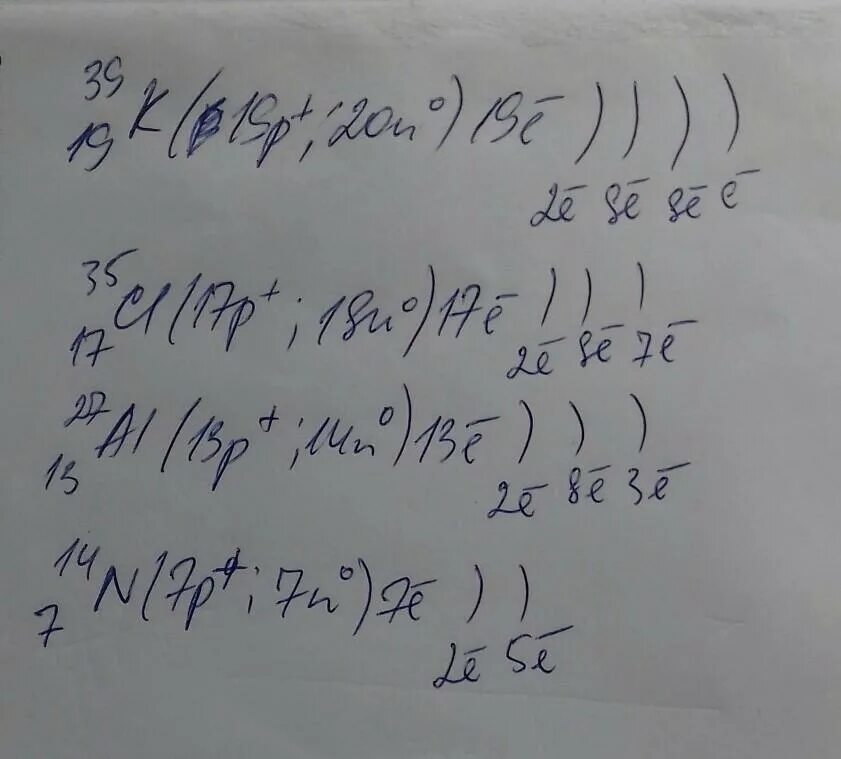 39
19 K (19p⁺; 20n⁰) 19ē ) ) ) )
2ē 8ē 8ē ē
35
17 Cl (17p⁺; 18n⁰) 17ē ) ) )
2ē 8ē 7ē
27
13 Al (13p⁺; 14n⁰) 13ē ) ) )
2ē 8ē 3ē
14
7 N (7p⁺; 7n⁰) 7ē ) )
2ē 5ē